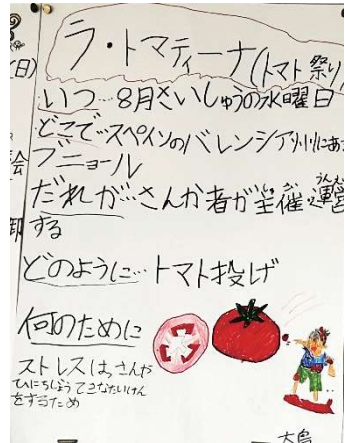 ラ・トマティーナ(トマト祭り)
いつ…8月さいしゅうの水曜日
どこで…スペインのバレンシア州にあ
ブニョール
だれが…さんか者が主催運営
しゅ さい うんえい
する
どのように…トマト投げ
何のために
ストレスはっさんや
ひにちじょうてきなたいけん
をするため
大鳥
(日)
会